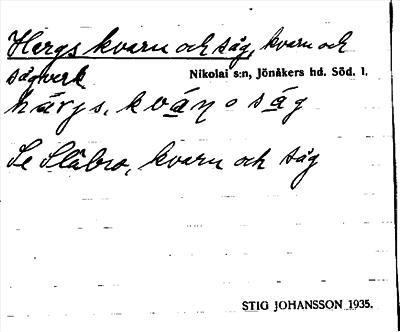 Hergs kvarn och såg, kvarn och
sågverk
Nikolai s:n, Jönåkers hd. Söd. l.
hærjs, kván o ság
Se Slåbro, kvarn och såg
STIG JOHANSSON 1935.